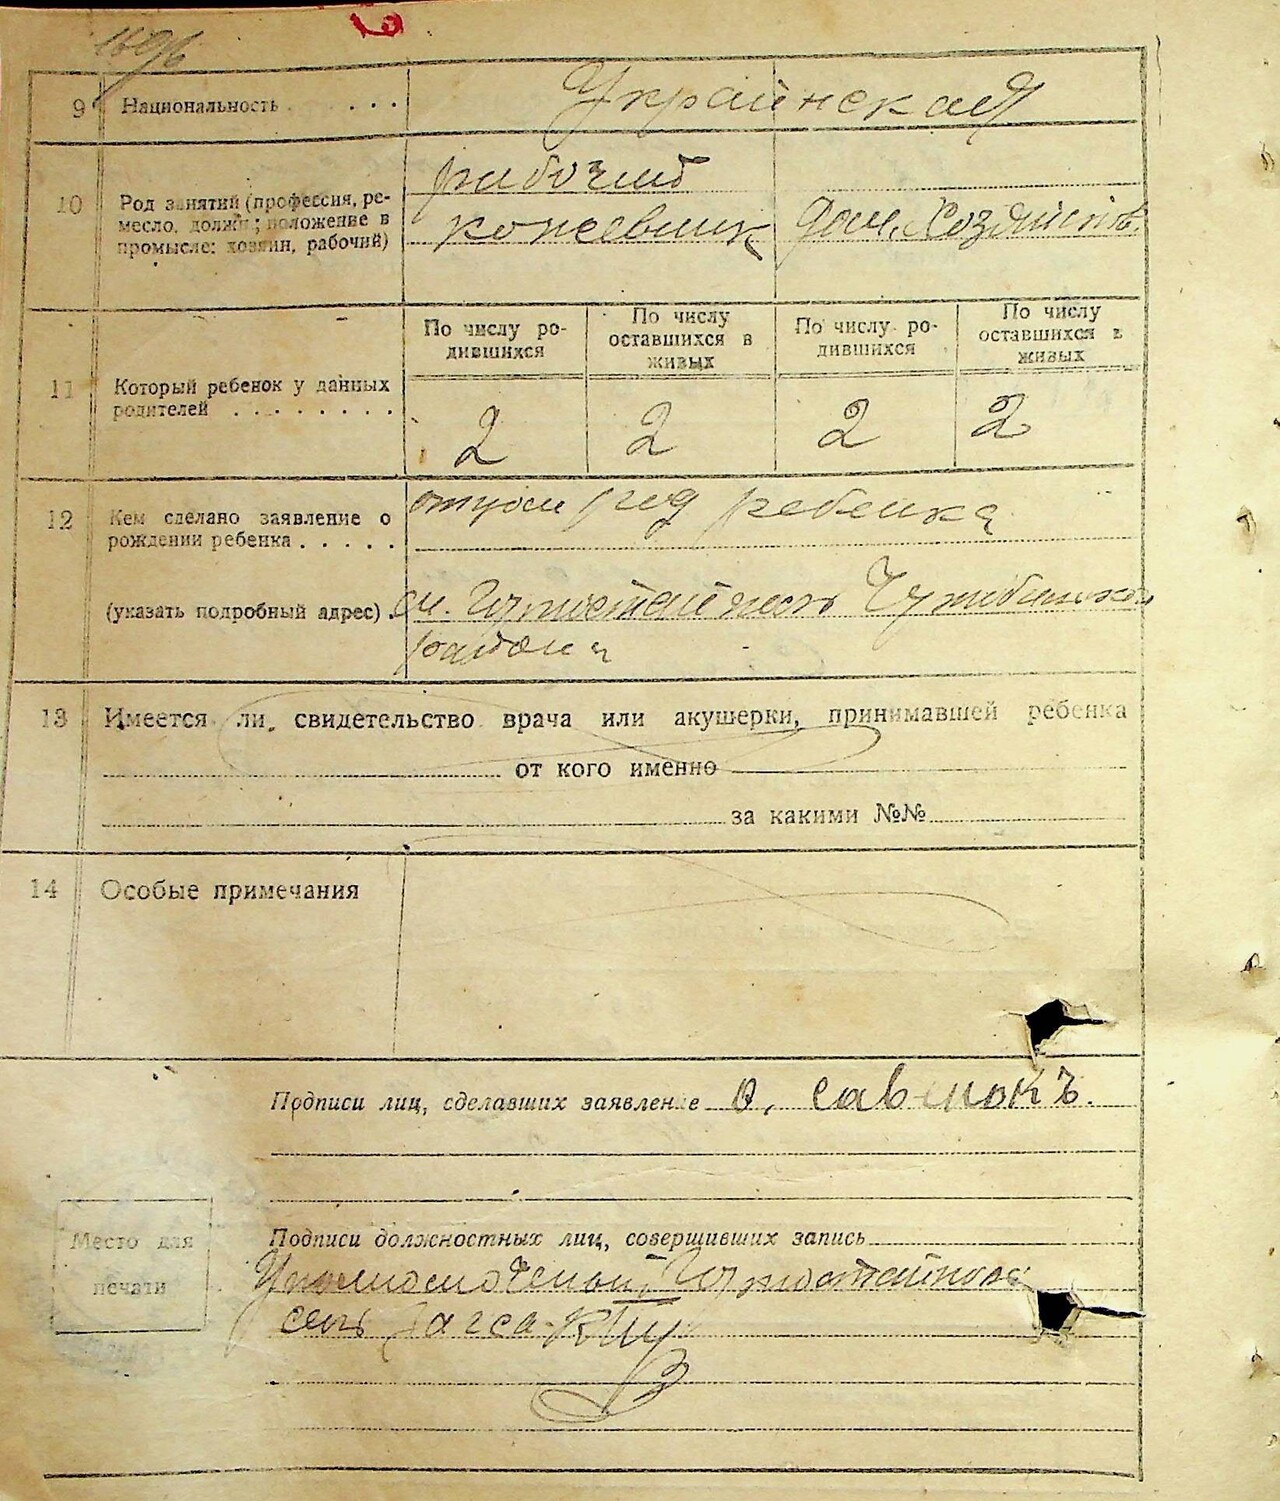 9 Национальность . . . . Украинская
10 Род занятий (профессия, ре-
месло, должн; положение в
промысле: хозяин, рабочий)
рабочий
кожевник дом. Хозяйств.
По числу ро-
дившихся
По числу
оставшихся в
живых
По числу ро-
дившихся
По числу
оставшихся в
живых
11 Который ребенок у данных
родителей . . . . . . . .
2 2 2 2
12 Кем сделано заявление о
рождении ребенка . . . . .
отцом ребенка
(указать подробный адрес) .
района
13 Имеется ли свидетельство врача или акушерки, принимавшей ребенка
от кого именно
за какими №№
14 Особые примечания
Подписи лиц, сделавших заявление О. Савенокъ.
Место для
печати
Подписи должностных лиц, совершивших запись
Загса